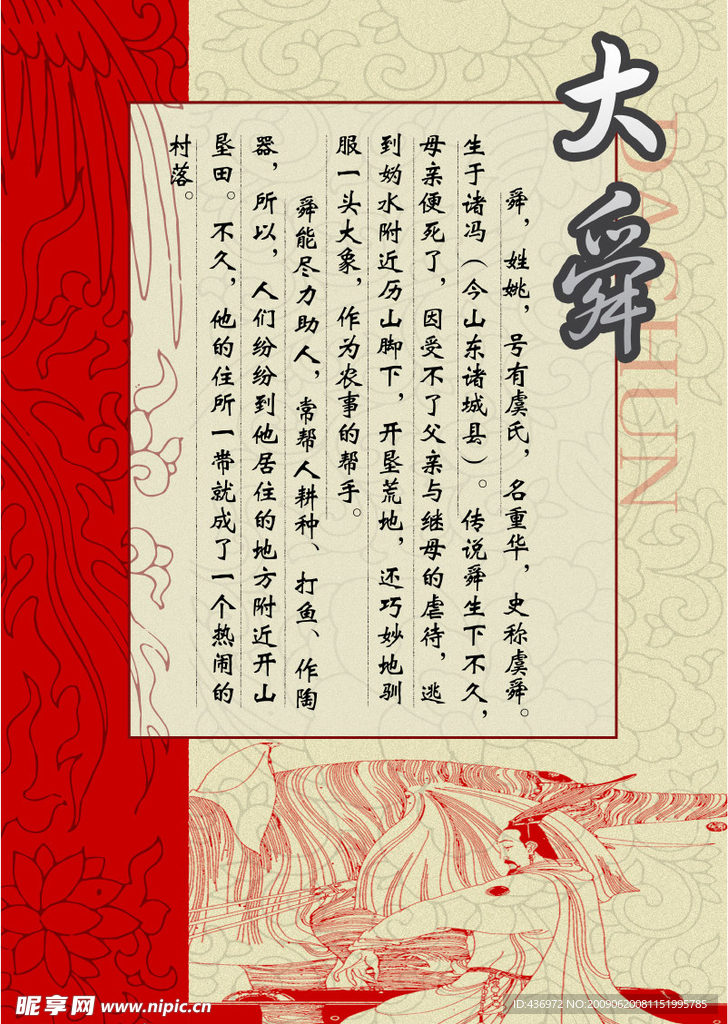 大舜
DA SHUN
舜，姓姚，号有虞氏，名重华，史称虞舜。
生于诸冯（今山东诸城县）。传说舜生下不久，
母亲便死了，因受不了父亲与继母的虐待，逃
到妫水附近历山脚下，开垦荒地，还巧妙地驯
服一头大象，作为农事的帮手。
舜能尽力助人，常帮人耕种、打鱼、作陶
器，所以，人们纷纷到他居住的地方附近开山
垦田。不久，他的住所一带就成了一个热闹的
村落。
昵享网 www.nipic.cn
ID:436972 NO:20090620081151995785